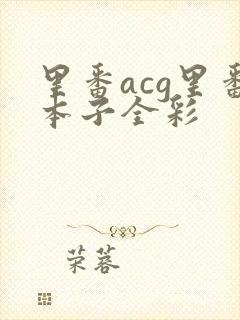 里番acg里番
本子全彩
荣蓉